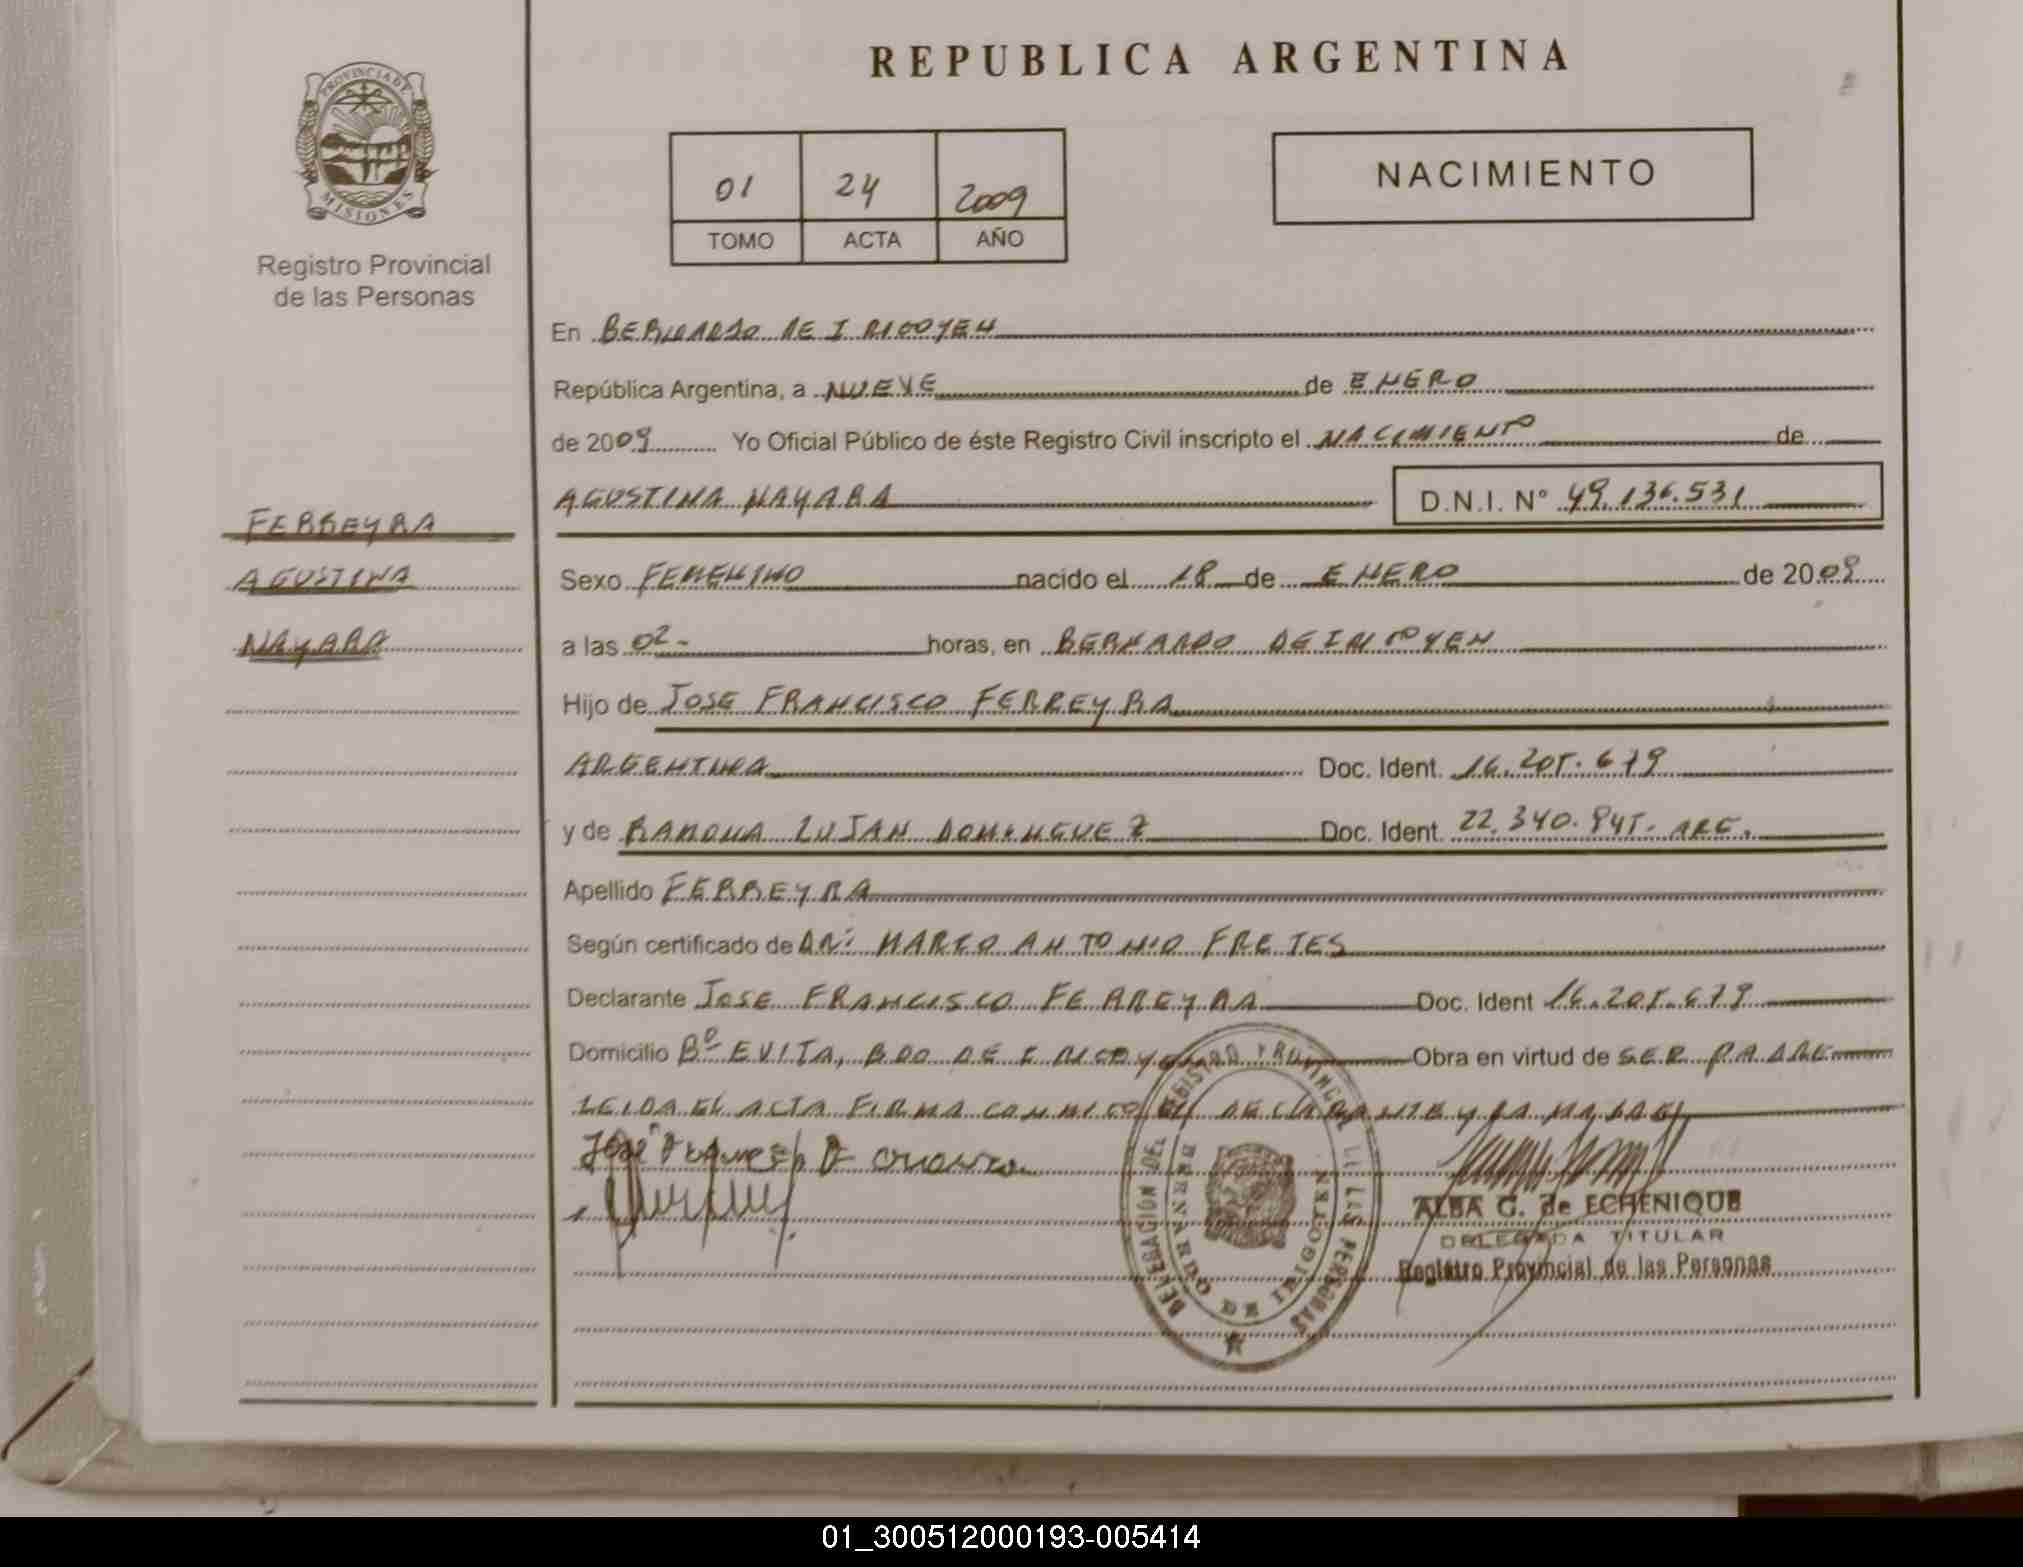 REPUBLICA ARGENTINA
PROVINCIA DE
MISIONES
Registro Provincial
de las Personas
01 24 2009
TOMO ACTA AÑO
NACIMIENTO
En BERNARDO DE IRIGOYEN
República Argentina, a NUEVE de ENERO
de 2009 Yo Oficial Público de éste Registro Civil inscripto el NACIMIENTO de
AGUSTINA NAYARA D.N.I. N° 49.136.531
FERREYRA
AGUSTINA
NAYARA
Sexo FEMENINO nacido el 18 de ENERO de 2009
a las 02- horas, en BERNARDO DE
Hijo de JOSE FRANCISCO FERREYRA
ARGENTINA Doc. Ident. 16.205.679
y de RAMONA LUJAN DOMINGUEZ Doc. Ident. 22.340.845. ARG.
Apellido FERREYRA
Según certificado de DR: MARIO ANTONIO FRETES
Declarante JOSE FRANCISCO FERREYRA Doc. Ident 16.205.679
Domicilio Bº EVITA, BDO DE IRIGOYEN Obra en virtud de SER PADRE
LEIDA EL ACTA FIRMA CONMIGO EL DECLARANTE Y LA MADRE
José
DELEGACION DEL REGISTRO PROVINCIAL DE LAS PERSONAS
BERNARDO DE IRIGOYEN
ALBA G. de ECHENIQUE
DELEGADA TITULAR
Registro Provincial de las Personas
01_300512000193-005414